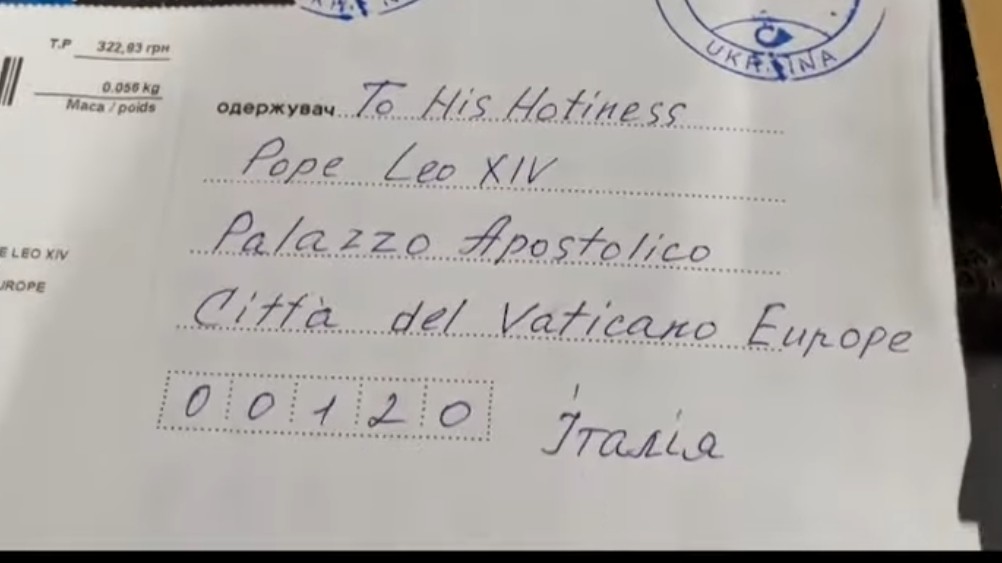 Т.Р 322,93 грн
0.056 kg
Маса / poids
UKRAINA
одержувач To His Hotiness
Pope Leo XIV
Palazzo Apostolico
E LEO XIV
UROPE
Città del Vaticano Europe
00120 Італія